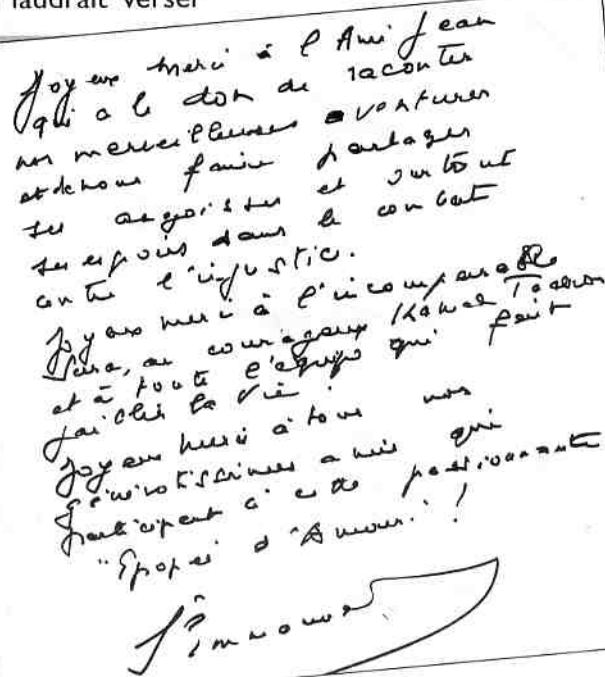 faudrait verser
Joyeux merci à l'Ami Jean
qui a le don de raconter
nos merveilleuses aventures
et de nous faire partager
ses angoisses et surtout
ses espoirs dans le combat
contre l'injustice.
Joyeux merci à l'incomparable
Sara, au courageux Kamel
et à toute l'équipe qui fait
jaillir la vie !
Joyeux merci à tous nos
générotissimes amis qui
participent à cette passionnante
"Épopée d'Amour" !
Sr Emmanuelle